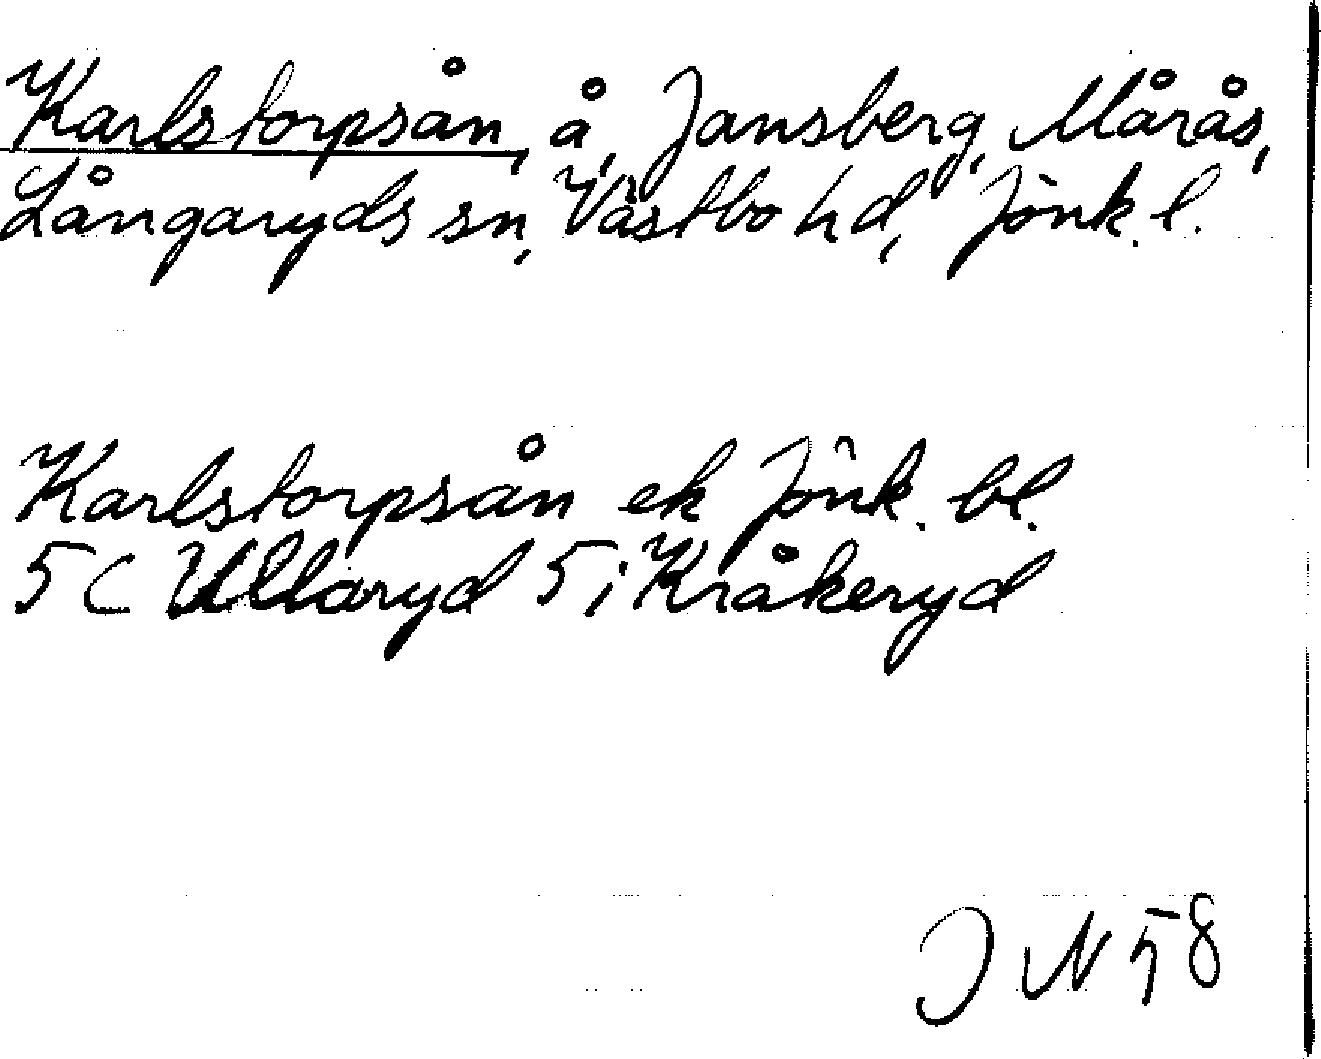 Karlstorpsån, å, Jansberg, Mårås,
Långaryds sn, Västbo hd, Jönk. l.
Karlstorpsån ek Jönk. bl.
5 C Ullaryd 5 i Kråkeryd
J N 58